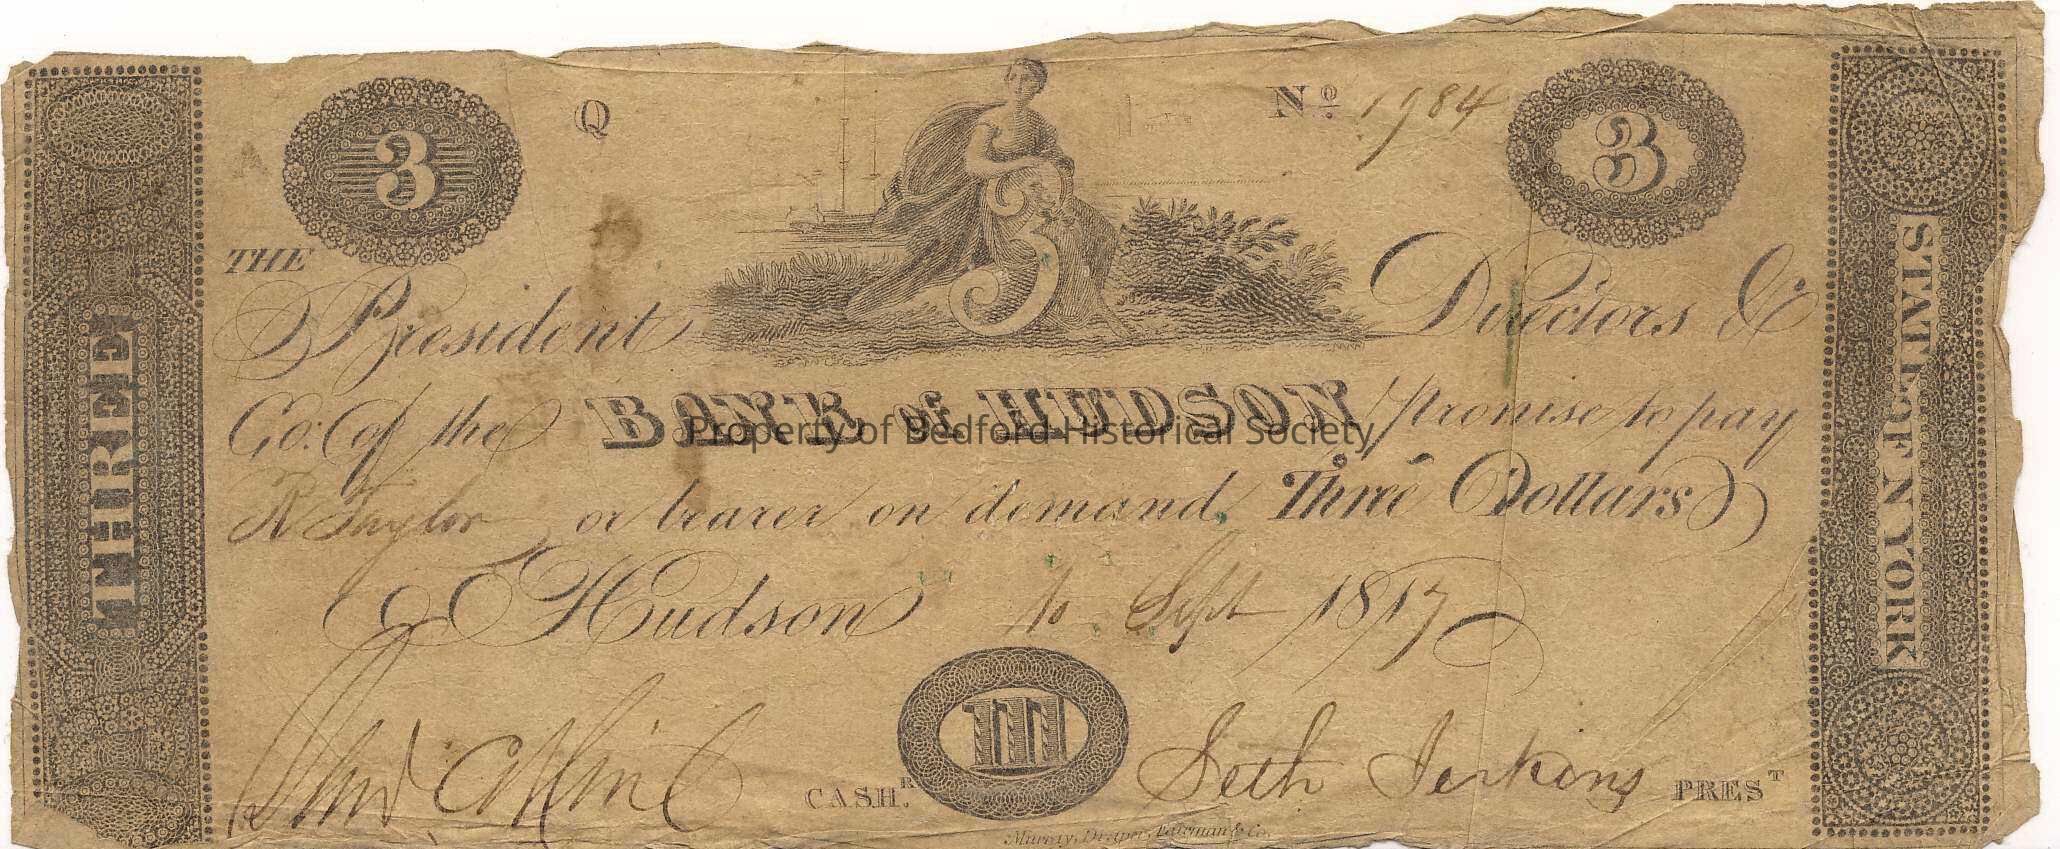 3
Q
Nº 1984
3
THE
President
Directors &
Co: of the BANK of HUDSON promise to pay
R Taylor or bearer on demand, Three Dollars
Hudson 10 Sept 1817
III
CASH.R
Seth Jenkins PREST
Murray, Draper, Fairman & Co.
THREE
STATE OF N YORK
3
Property of Bedford Historical Society